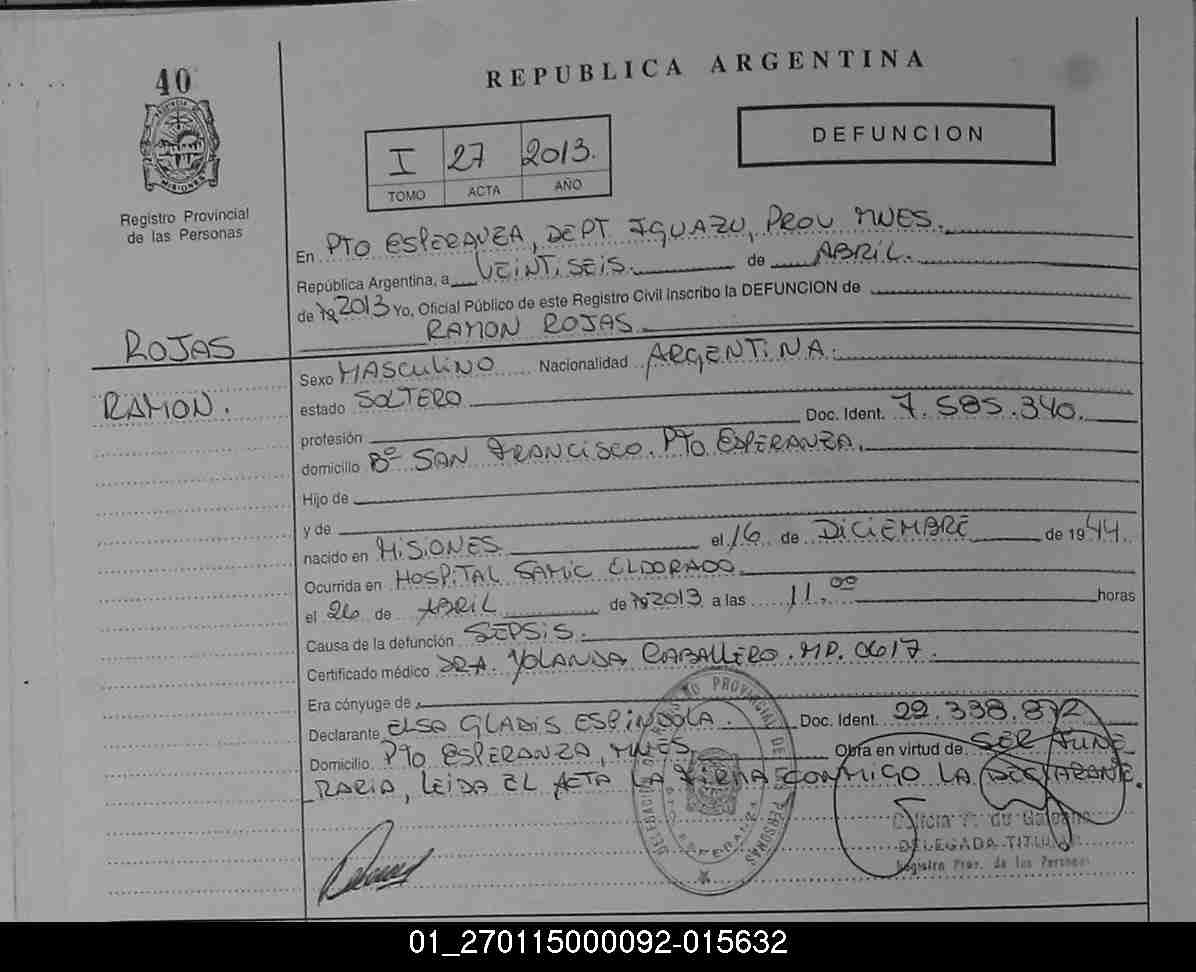 40
REPUBLICA ARGENTINA
DEFUNCION
I 27 2013.
TOMO ACTA AÑO
PROVINCIA DE MISIONES
Registro Provincial
de las Personas
En PTO ESPERANZA, DEPT IGUAZU, PROV MNES.
República Argentina, a VEINTISEIS. de ABRIL.
de 19 2013 Yo, Oficial Público de este Registro Civil inscribo la DEFUNCION de
RAMON ROJAS.
ROJAS
RAMON.
Sexo MASCULINO Nacionalidad ARGENTINA.
estado SOLTERO
profesión Doc. Ident. 7.585.340.
domicilio Bº SAN FRANCISCO. PTO ESPERANZA.
Hijo de
y de
nacido en MISIONES el 16 de DICIEMBRE de 1944.
Ocurrida en HOSPITAL SAMIC ELDORADO.
el 26 de ABRIL de 19 2013 a las 11,00 horas
Causa de la defunción SEPSIS.
Certificado médico DRA. YOLANDA CABALLERO. MP. 0617.
Era cónyuge de
Declarante ELSA GLADIS ESPINDOLA. Doc. Ident. 22.338.872
Domicilio PTO ESPERANZA, MNES. Obra en virtud de SER FUNE
RARIA, LEIDA EL ACTA LA FIRMA CONMIGO LA DECLARANTE.
DELEGADA TITULAR
Registro Prov. de las Personas
01_270115000092-015632